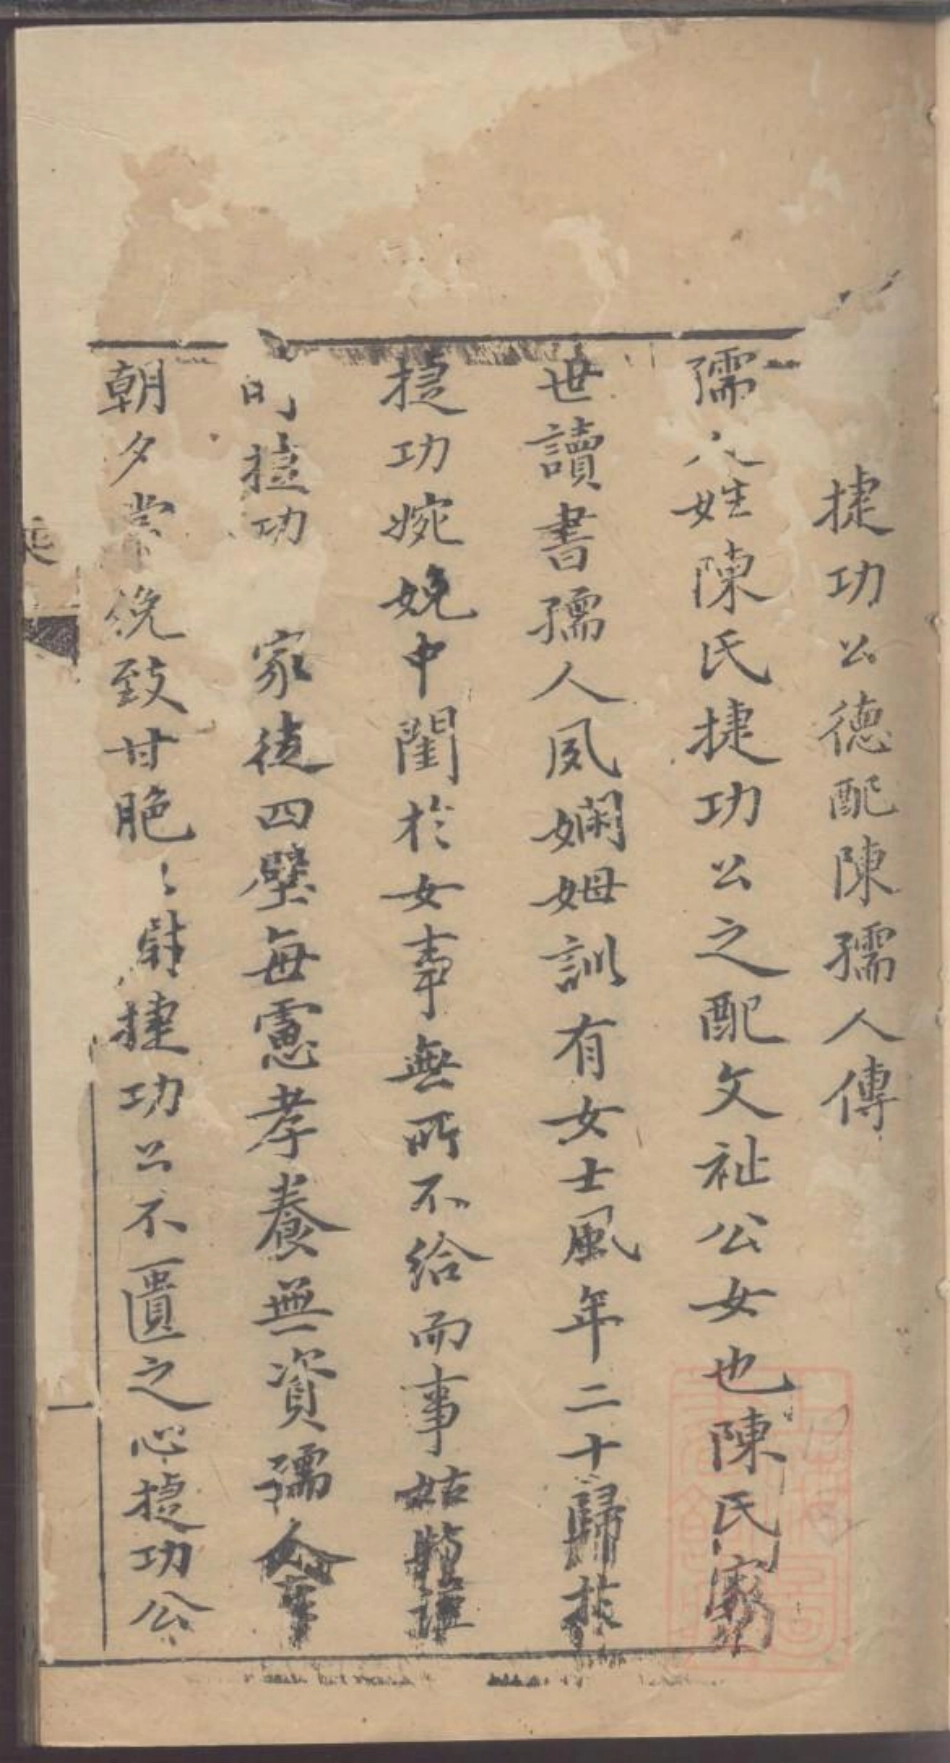 捷功公德配陳孺人傳
孺人姓陳氏捷功公之配文祉公女也陳氏家
世讀書孺人夙嫻姆訓有女士風年二十歸於
捷功婉娩中閨於女事無所不給而事姑特謹
時捷功 家徒四壁每慮孝養無資孺人
朝夕黽勉致甘脆以慰捷功公不匱之心捷功公